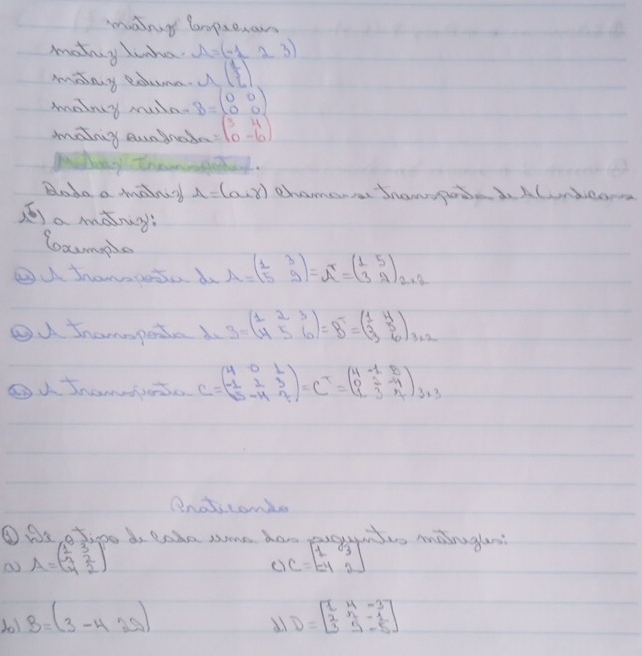 Matriz Especiais
Matriz linha - A=(-1 2 3)
Matriz coluna - A
Matriz nula - B = (0 0
0 0)
Matriz quadrada = (3 4
0 -6)
Matriz transposta.
Dada a matriz A=(aij) chama-se transposta de A (indica-se
At) a matriz:
Exemplo
A transposta de A = (1 3
5 2) = AT = (1 5
3 2) 2x2
A transposta de B = (1 2 3
4 5 6) = BT = (1 4
2 5
3 6) 3x2
A transposta C = (4 0 1
-1 2 3
8 -4 7) = CT = (4 -1 8
0 2 -4
1 3 7) 3x3
Praticando
① Dê o tipo de cada uma das seguintes matrizes:
a) A =
c) C = [1 3
-4 2]
b) B = (3 -4
d) D = [1 4 -3